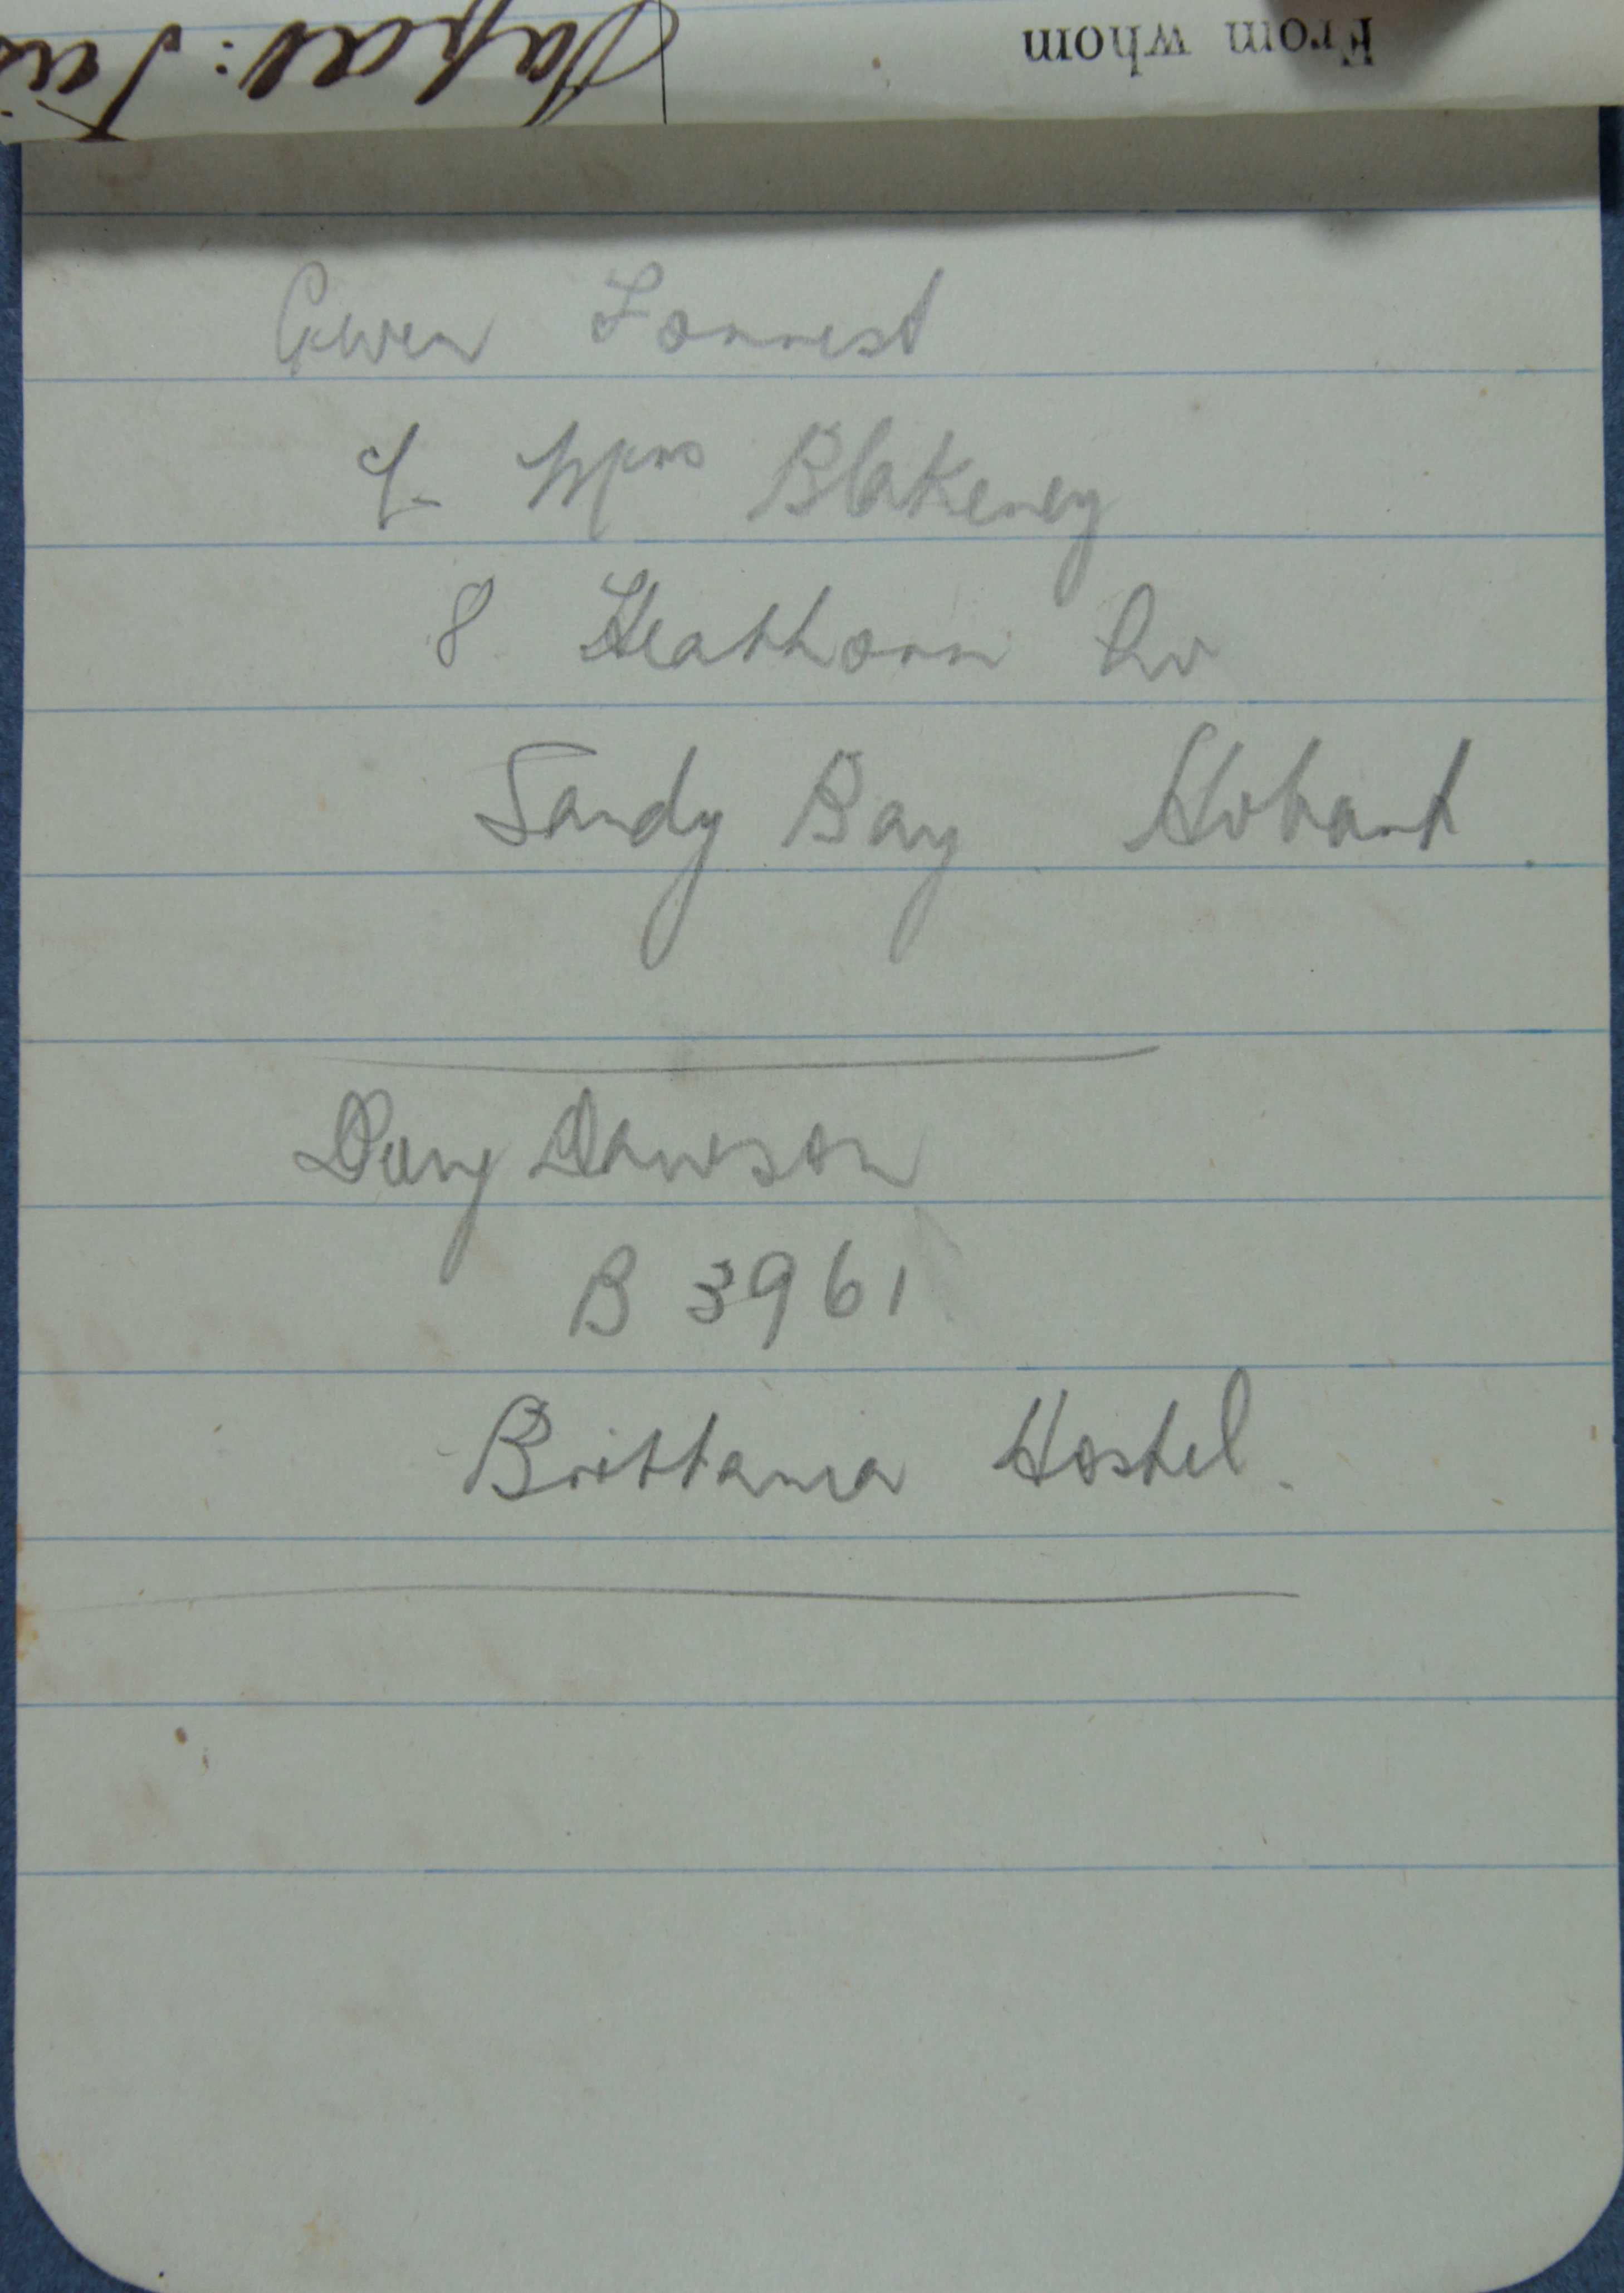 From whom
Gwen Forrest
c/- Mrs Blakeney
8 Heathorn Av
Sandy Bay Hobart
Doug Dawson
B 3961
Brittania Hostel.